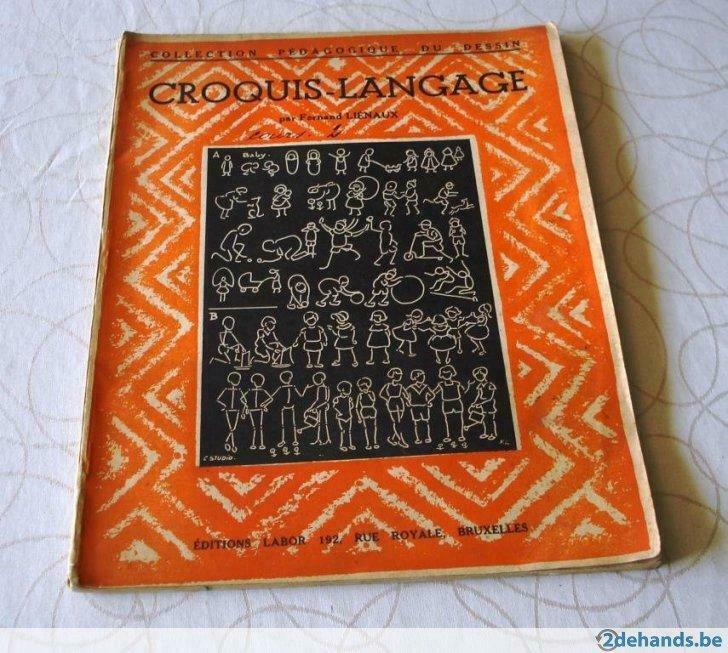 COLLECTION PÉDAGOGIQUE DU DESSIN
CROQUIS-LANGAGE
par Fernand LIÉNAUX
A Baby.
B
C STUDIO. F.L.
ÉDITIONS LABOR 192, RUE ROYALE, BRUXELLES
2dehands.be